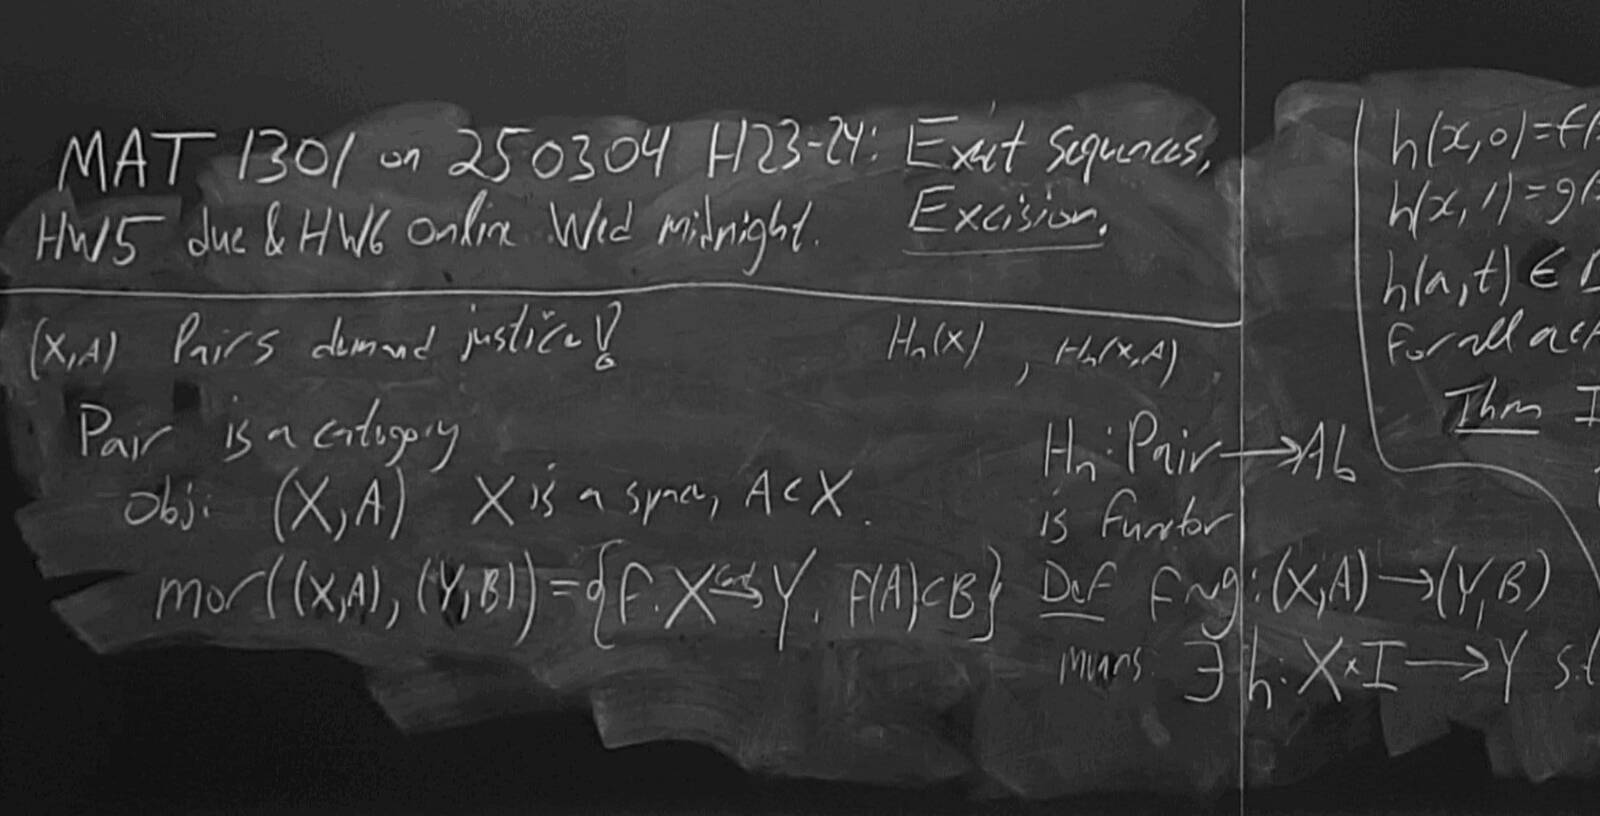 MAT 1301 on 250304 H23-24: Exact Sequences,
HW5 due & HW6 online Wed midnight. Excision.
(X,A) Pairs demand justice! Hn(X), Hn(X,A).
Pair is a category
Obj: (X,A) X is a space, A⊂X.
mor((X,A),(Y,B))={f: X→Y: f(A)⊂B}
Hn: Pair→Ab
is functor
Def f~g: (X,A)→(Y,B)
means: ∃h: X×I→Y s.t
h(x,0)=f(
h(x,1)=g(
h(a,t)∈
for all a∈A
Thm